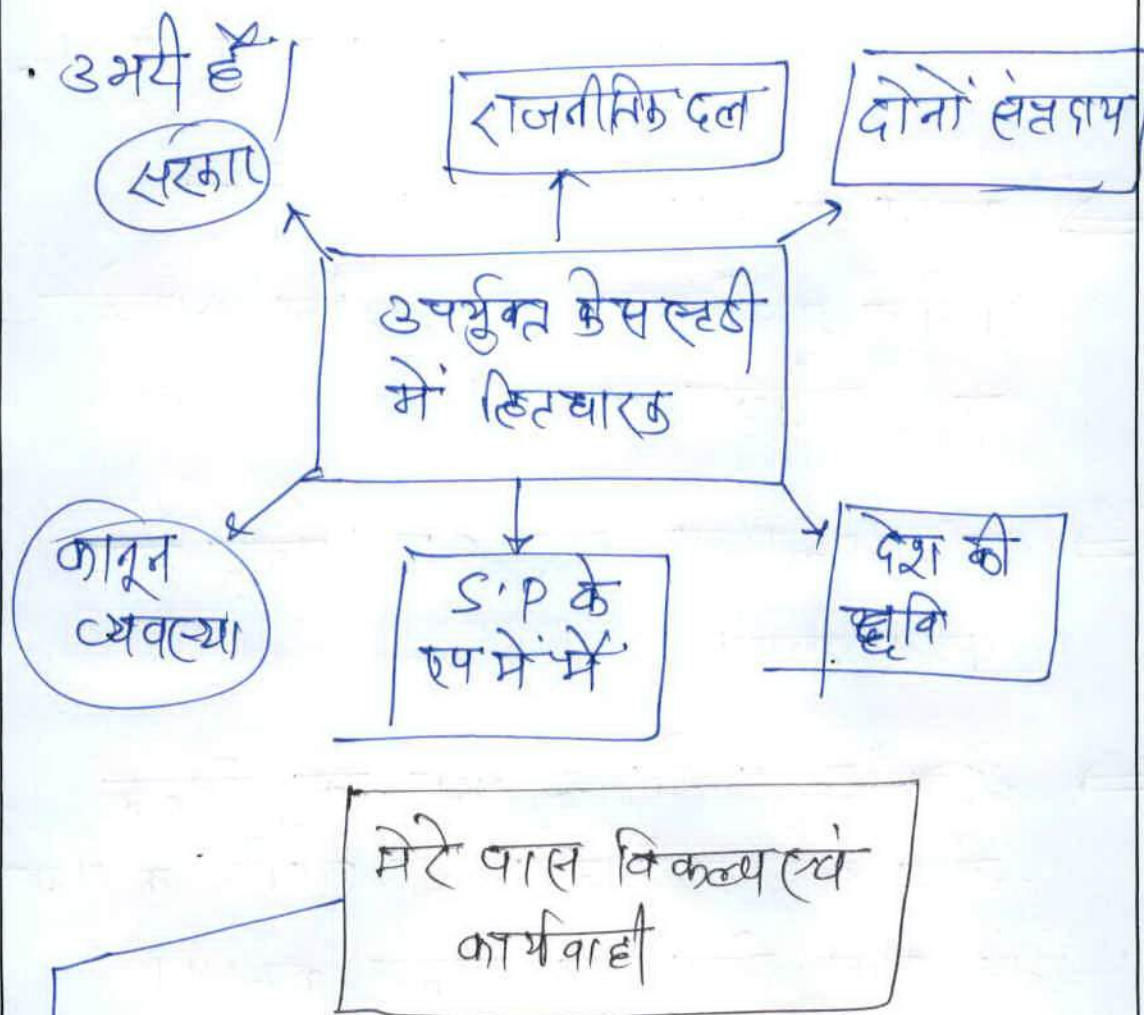 . उभरी है।
सरकार
राजनीतिक दल
दोनों संप्रदाय
उपर्युक्त केस स्टडी
में हितधारक
कानून
व्यवस्था
S.P के
रूप में मैं
देश की
छवि
मेरे पास विकल्प एवं
कार्यवाही